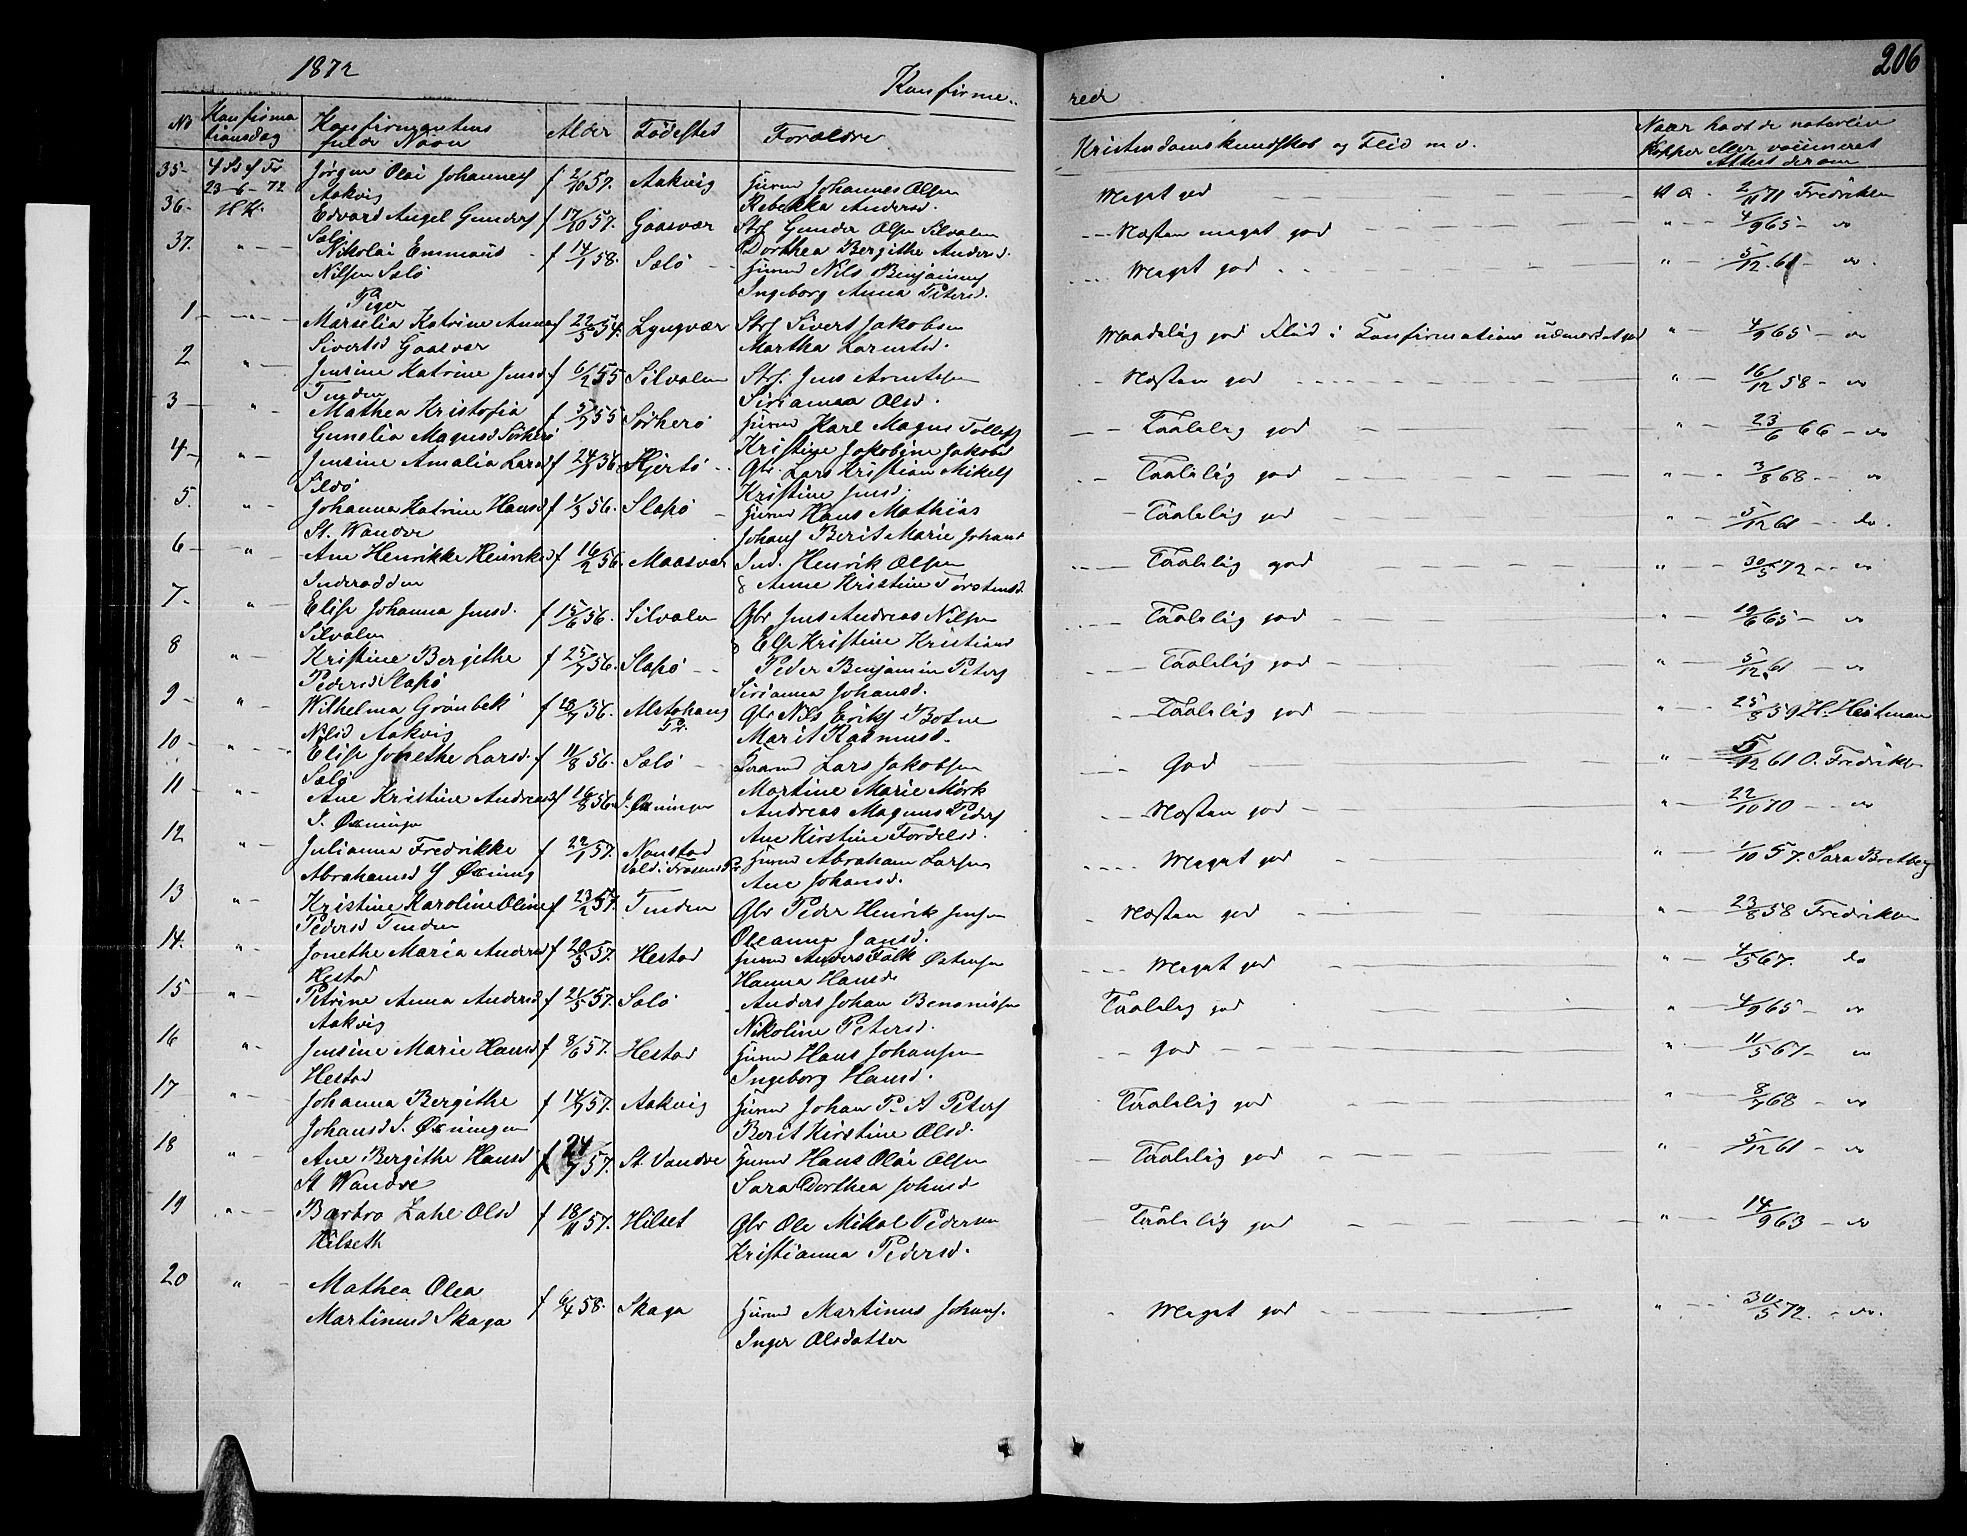 1872
Konfirme..
rede
206
No
Konfirma
tionsdag
Konfirmantens
fulde Navn
Alder
Födested
Forældre
Kristendomskundskab og Flid m. v.
Naar havt de naturlige
Kopper eller vaccineret
Attest derom
35- 4 S. f Tr. Jörgen Olai Johannes f 2/10 57. Aakvig Huusm Johannes Olsen Meget god 2/11 71 Fredriksen
23-6-72 Aakvig Rebekka Andersd.
36. H K. Edvard Angel Gunders f 17/10 57. Gaasvær Str. Gunder Olsen Silvalen Næsten meget god " - 4/9 65 - do
Salö Dorthea Bergithe Andersd.
37. " - Nikolai Emmaus f 14/1 58. Salö Huusm Nils Benjamins Meget god " - 5/12 61 - do.
Nilsen Salö Ingeborg Anna Petersd.
Piger
1 - " - Marselia Katrine Anna f 22/5 54. Lyngvær Str Sivert Jakobsen Maadelig god Flid i Konfirmations udmærket god " - 4/9 65 - do
Sivertsd Gaasvær Martha Larntsd.
2 " - Jensine Katrine Jensd. f 6/2 55 Silvalen Str. Jens Arntsen Næsten god " - 16/12 58 - do
Tinden Sirianna Olsd.
3 - " - Mathea Kristofia f 5/7 55 Sörherö Huusm Karl Magus Tollefs Taalelig god " - 23/6 66 - do
Gunelia Magusd Sörherö Kristine Jakobine Jakobsd
4 - " - Jensine Amalia Larsd f 24/9 56 Hjertö Gbr. Lars Kristian Mikels Taalelig god " - 3/8 68 - do
Sildö Kristine Jensd.
5. " - Johanna Katrine Hansd f 1/3 56. Slapö Huusm Hans Mathias Taalelig god " - 5/12 61 - do.
St. Wandve Johans Berit Marie Johansd
6 - " - Ane Henrikke Heinriksd f 16/2 56. Maasvær Ind. Henrik Olsen Taalelig god " - 30/5 72 - do
Inderodden & Anne Kristine Torstensd
7 - " Elise Johanna Jensd. f 15/6 56. Silvalen Gbr Jens Andreas Nilsen Taalelig god " - 19/6 65 - do
Silvalen & Else Kristine Kristiansd
8 " - Kristine Bergithe f 25/7 56. Slapö Peder Benjamin Peters Taalelig god " - 5/12 61 - do
Pedersd Slapö Sirianna Johansd.
9 - " - Wilhelma Grönbek f 28/7 56. Alstahaug Gbr Nils Eriks i Botne Taalelig god " - 25/8 59 H. Heitman
Nilsd Aakvig Pr. Marit Rasmusd.
10 - " - Elise Jonethe Larsd. f 11/8 56. Salö Huusm Lars Jakobsen God " - 5/12 61 O. Fredriksen
Salö Martine Marie Mörk
11 " - Ane Kristine Andreasd f 16/8 56 S. Öxningen Andreas Magnus Peders Næsten god " - 22/10 70 - do
S. Öxningen Ane Kirstine Fordelsd.
12 " - Julianna Fredrikke f 22/1 57. Nonstad Huusm Abraham Larsen Meget god " - 1/10 57. Sara Bretberg
Abrahamsd S Öxning Ane Johansd.
13 " - Kristine Karoline Oline f 23/2 57. Tinden Gbr Peder Henrik Jensen Næsten god " - 23/8 58 Fredriksen
Pedersd Tinden Oleanna Jansd.
14. " Jonethe Maria Andersd f 20/5 57. Hestad Huusm Anders Falk Östensen Meget god " - 4/5 67. do
Hestad Hanna Hansd
15 " - Petrine Anna Andersd f 21/5 57. Salö Anders Johan Benonisen Taalelig god " - 4/9 65 - do
Aakvig Nikoline Petersd.
16 " - Jensine Marie Hansd f 8/6 57. Hestad Huusm Hans Johansen God " - 11/5 67 - do
Hestad Ingeborg Hansd.
17 " - Johanna Bergithe f 14/7 57. Aakvig Huusm Johan P. A Peters Taalelig god " - 8/7 68 - do
Johansd S. Öxningen Berit Kirstine Olsd.
18 " - Ane Bergithe Hansd f 24/7 57. St. Vandve Huusm Hans Olai Olsen Taalelig god " - 5/12 61 - do
St Wandve Sara Dorthea Johnsd
19 " - Barbro Zahl Olsd f 18/11 57. Hilset Gbr Ole Mikal Pedersen Taalelig god " - 14/9 63 - do
Hilseth Kristianna Pedersd.
20 " - Mathea Olea f 6/4 58. Skaga Huusm Martinus Johans. Meget god " - 30/5 72. - do.
Martinusd Skaga Inger Olsdatter